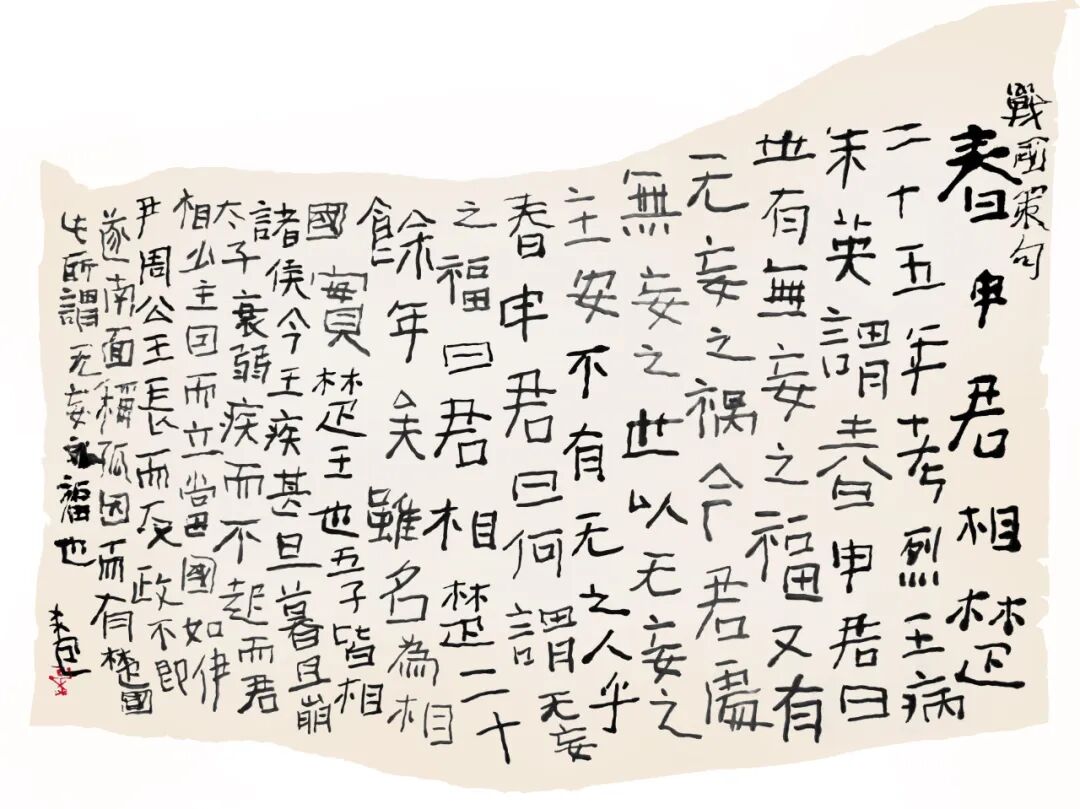 戰國策句
春申君相楚
二十五年考烈王病
朱英謂春申君曰
世有無妄之福又有
无妄之禍今君處
無妄之世以无妄之
主安不有无之人乎
春申君曰何謂无妄
之福曰君相楚二十
餘年矣雖名為相
國實楚王也五子皆相
諸侯今王疾甚旦暮且崩
太子衰弱疾而不起而君
相少主因而立當國如伊
尹周公王長而反政不即
遂南面稱孤因而有楚國
此所謂无妄福也